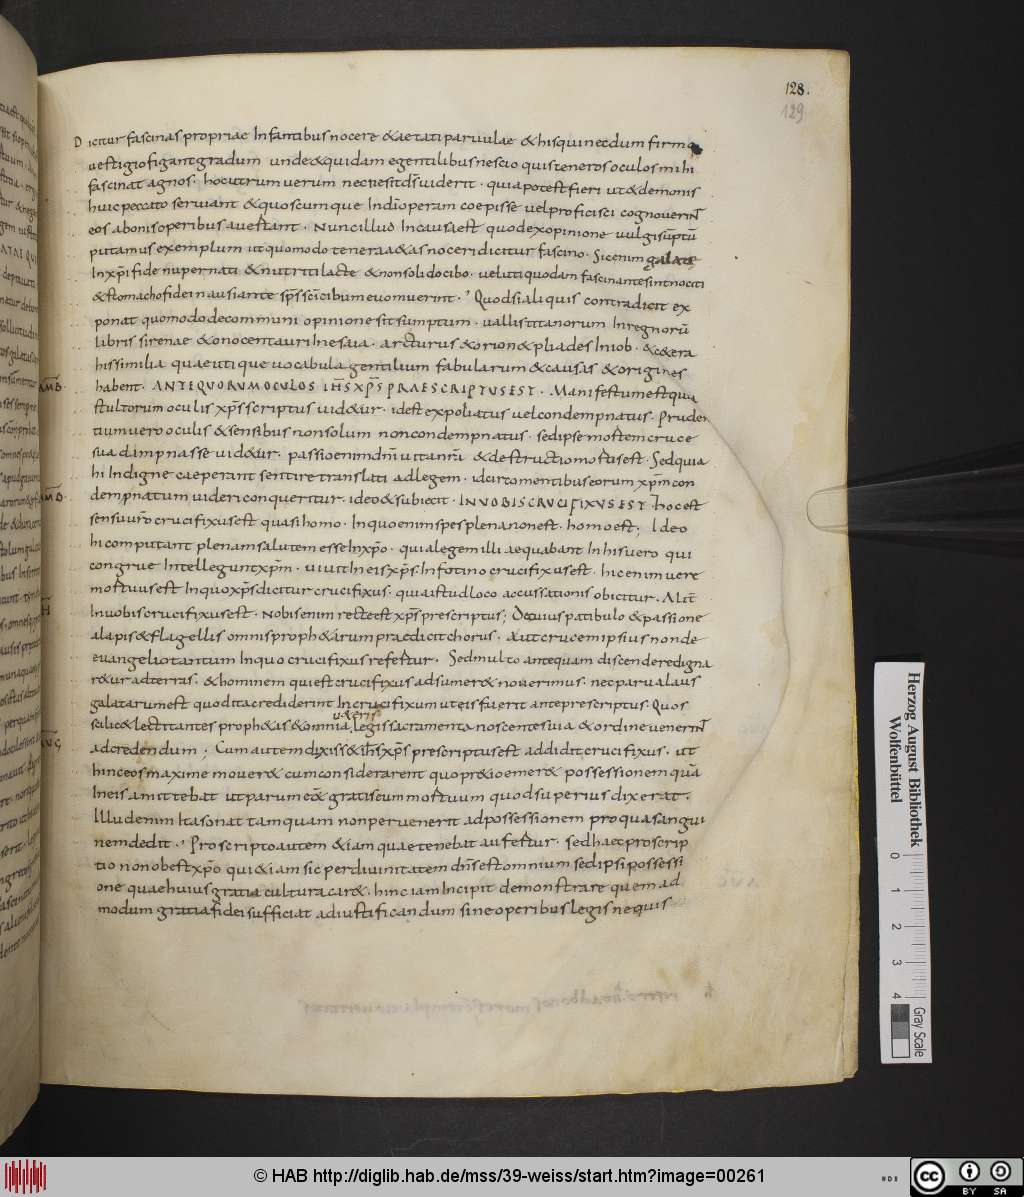 128.
129
Dicitur fascinas propriae Infantibus nocere & aetati parvulae & his qui necdum firmo
vestigio figant gradum unde & quidam e gentilibus nescio quis teneros oculos mihi
fascinat agnos · hoc utrum verum nec ne sit d̄s viderit · quia potest fieri ut & demonis
huic peccato serviant & quoscumque In dī operam coepisse vel proficisci cognoverint
eos a bonis operibus avertant · Nunc illud In causa est quod ex opinione vulgi sūptū
putamus exemplum ut quomodo tenera aetas noceri dicitur fascino · Sic enim galatę
In xp̄i fide nuper nati & nutriti lacte & non solido cibo · veluti quodam fascinante sint nociti
& stomacho fidei nausiante sp̄s sc̄i cibum evomuerint · Quod si aliquis contradicit ex
ponat quomodo de communi opinione sit sumptum · vallis titanorum In regnorū
libris sirenae & onocentauri In esaia · arcturus & orion & pliades In iob · & c&era
his similia quae utique vocabula gentilium fabularum & causas & origines
habent · ANTE QUORUM OCULOS IH̄S XP̄S PRAESCRIPTUS EST · Manifestum est qua
stultorum oculis xp̄s scriptus vid&ur · idest expoliatus vel condempnatus · Pruden
tium vero oculis & sensibus non solum non condempnatus · sed ipse mortem cruce
sua dampnasse vid&ur · passio enim dn̄i vita nr̄a & destructio mortis est · Sed quia
hi Indigne caeperant sentire translati ad legem · idcirco mentibus eorum xp̄m con
dempnatum videri conqueritur · ideo & subiecit · IN VOBIS CRUCIFIXUS EST hoc est
sensu ur̄o crucifixus est quasi homo · In quo enim spes plena non est · homo est ; Ideo
hi computant plenam salutem esse In xp̄o · qui a legem illi aequabant In his vero qui
congrue Intellegunt xp̄m · vivit In eis xp̄s · In fotino crucifixus est · hic enim vere
mortuus est In quo xp̄s dicitur crucifixus · quia istud loco accussationis obicitur · Alīt
In vobis crucifixus est · Nobis enim recte est xp̄s prescriptus ; De cuius patibulo & passione
alapis & flagellis omnis proph&arum praedicit chorus · aut crucem ipsius non de
evangelio tantum In quo crucifixus refertur · Sed multo antequam discendere digna
r&ur ad terras · & hominem qui est crucifixus adsumer& noverimus · nec parva laus
galatarum est quod ita crediderint In crucifixum ut eis fuerit ante prescriptus · Quos
v·&eris
salic& lectitantes proph&as & omnia legis sacramenta noscentes via & ordine venerint
ad credendum ; Cum autem dixiss& ih̄s xp̄s prescriptus est addidit crucifixus · ut
hinc eos maxime mover& cum considerarent quo pr&io emer& possessionem quā
In eis amittebat ut parum e& gratis eum mortuum quod superius dixerat ·
Illud enim Ita sonat tamquam non pervenerit ad possessionem pro qua sangui
nem dedit · Proscripto autem &iam quae tenebat aufertur · sed haec proscrip
tio non obest xp̄o qui &iam sic per divinitatem dn̄s est omnium sed ipsi possessi
one quae huius gratia cultura car& · hinc iam Incipit demonstrare quem ad
modum gratia fidei sufficiat ad iustificandum sine operibus legis ne quis
AMB
AMB
H
AUG
Herzog August Bibliothek
Wolfenbüttel
0 1 2 3 4
Gray Scale
© HAB http://diglib.hab.de/mss/39-weiss/start.htm?image=00261
cc BY SA